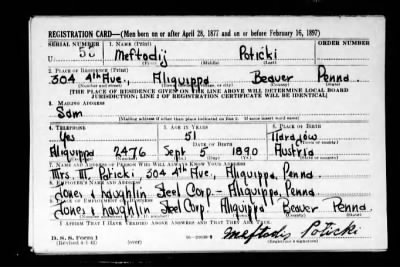 REGISTRATION CARD—(Men born on or after April 28, 1877 and on or before February 16, 1897)
SERIAL NUMBER 1. NAME (Print)
U Meftodij Poticki
(First) (Middle) (Last)
2. PLACE OF RESIDENCE (Print)
304 4th Ave., Aliquippa Beaver Penna
(Number and street) (Town, township, village, or city) (County) (State)
[THE PLACE OF RESIDENCE GIVEN ON THE LINE ABOVE WILL DETERMINE LOCAL BOARD
JURISDICTION; LINE 2 OF REGISTRATION CERTIFICATE WILL BE IDENTICAL]
3. MAILING ADDRESS
Sam
[Mailing address if other than place indicated on line 2. If same insert word same]
4. TELEPHONE 5. AGE IN YEARS 6. PLACE OF BIRTH
Yes 51
DATE OF BIRTH (Town or county)
Aliquippa 2476 Sept 5 1890 Austria
7. NAME AND ADDRESS OF PERSON WHO WILL ALWAYS KNOW YOUR ADDRESS
Mrs. M Poticki, 304 4th Ave., Aliquippa, Penna
8. EMPLOYER'S NAME AND ADDRESS
Jones & Laughlin Steel Corp - Aliquippa, Penna
9. PLACE OF EMPLOYMENT OR BUSINESS
Jones & Laughlin Steel Corp. Aliquippa Beaver Penna
I AFFIRM THAT I HAVE VERIFIED ABOVE ANSWERS AND THAT THEY ARE TRUE.
D. S. S. Form 1
(Revised 4-1-42) (over) Meftodij Poticki
(Registrant's signature)